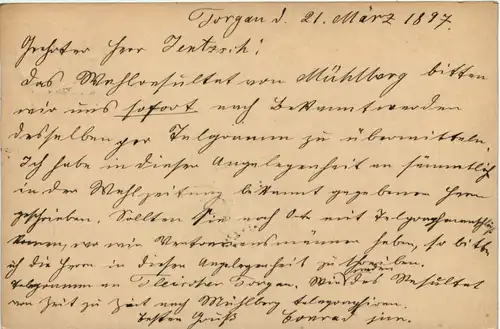 Torgau d. 21. März 1897.
Geehrter Herr Jentzsch!
Das Wahlresultat von Mühlberg bitten
wir uns sofort nach Bekanntwerden
desselben per Telgramm zu übermitteln.
Ich habe in dieser Angelegenheit an sämmtlich
in der Wahlzeitung bekannt gegebenen Herrn
geschrieben. Sollten Sie noch Orte mit
kennen, wo wir Vertrauensmänner haben, so bitte
ich die Herrn in dieser Angelegenheit zu schreiben.
Telegramme an Torgau. Wir werden das Resultat
von Zeit zu Zeit nach Mühlberg telegraphiren.
Besten Gruß Conrad jun.